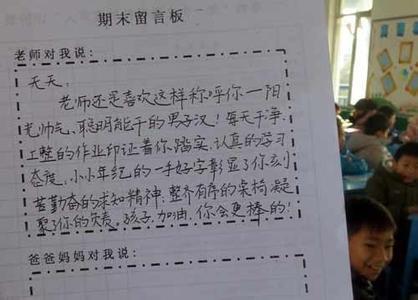 期末留言板
老师对我说：
天天：
老师还是喜欢这样称呼你——阳
光帅气、聪明能干的男子汉！每天干净、
工整的作业印证着你踏实、认真的学习
态度，小小年纪的一手好字彰显了你刻
苦勤奋的求知精神，整齐有序的桌椅凝
聚了你的负责，孩子，加油，你会更棒的！
爸爸妈妈对我说：